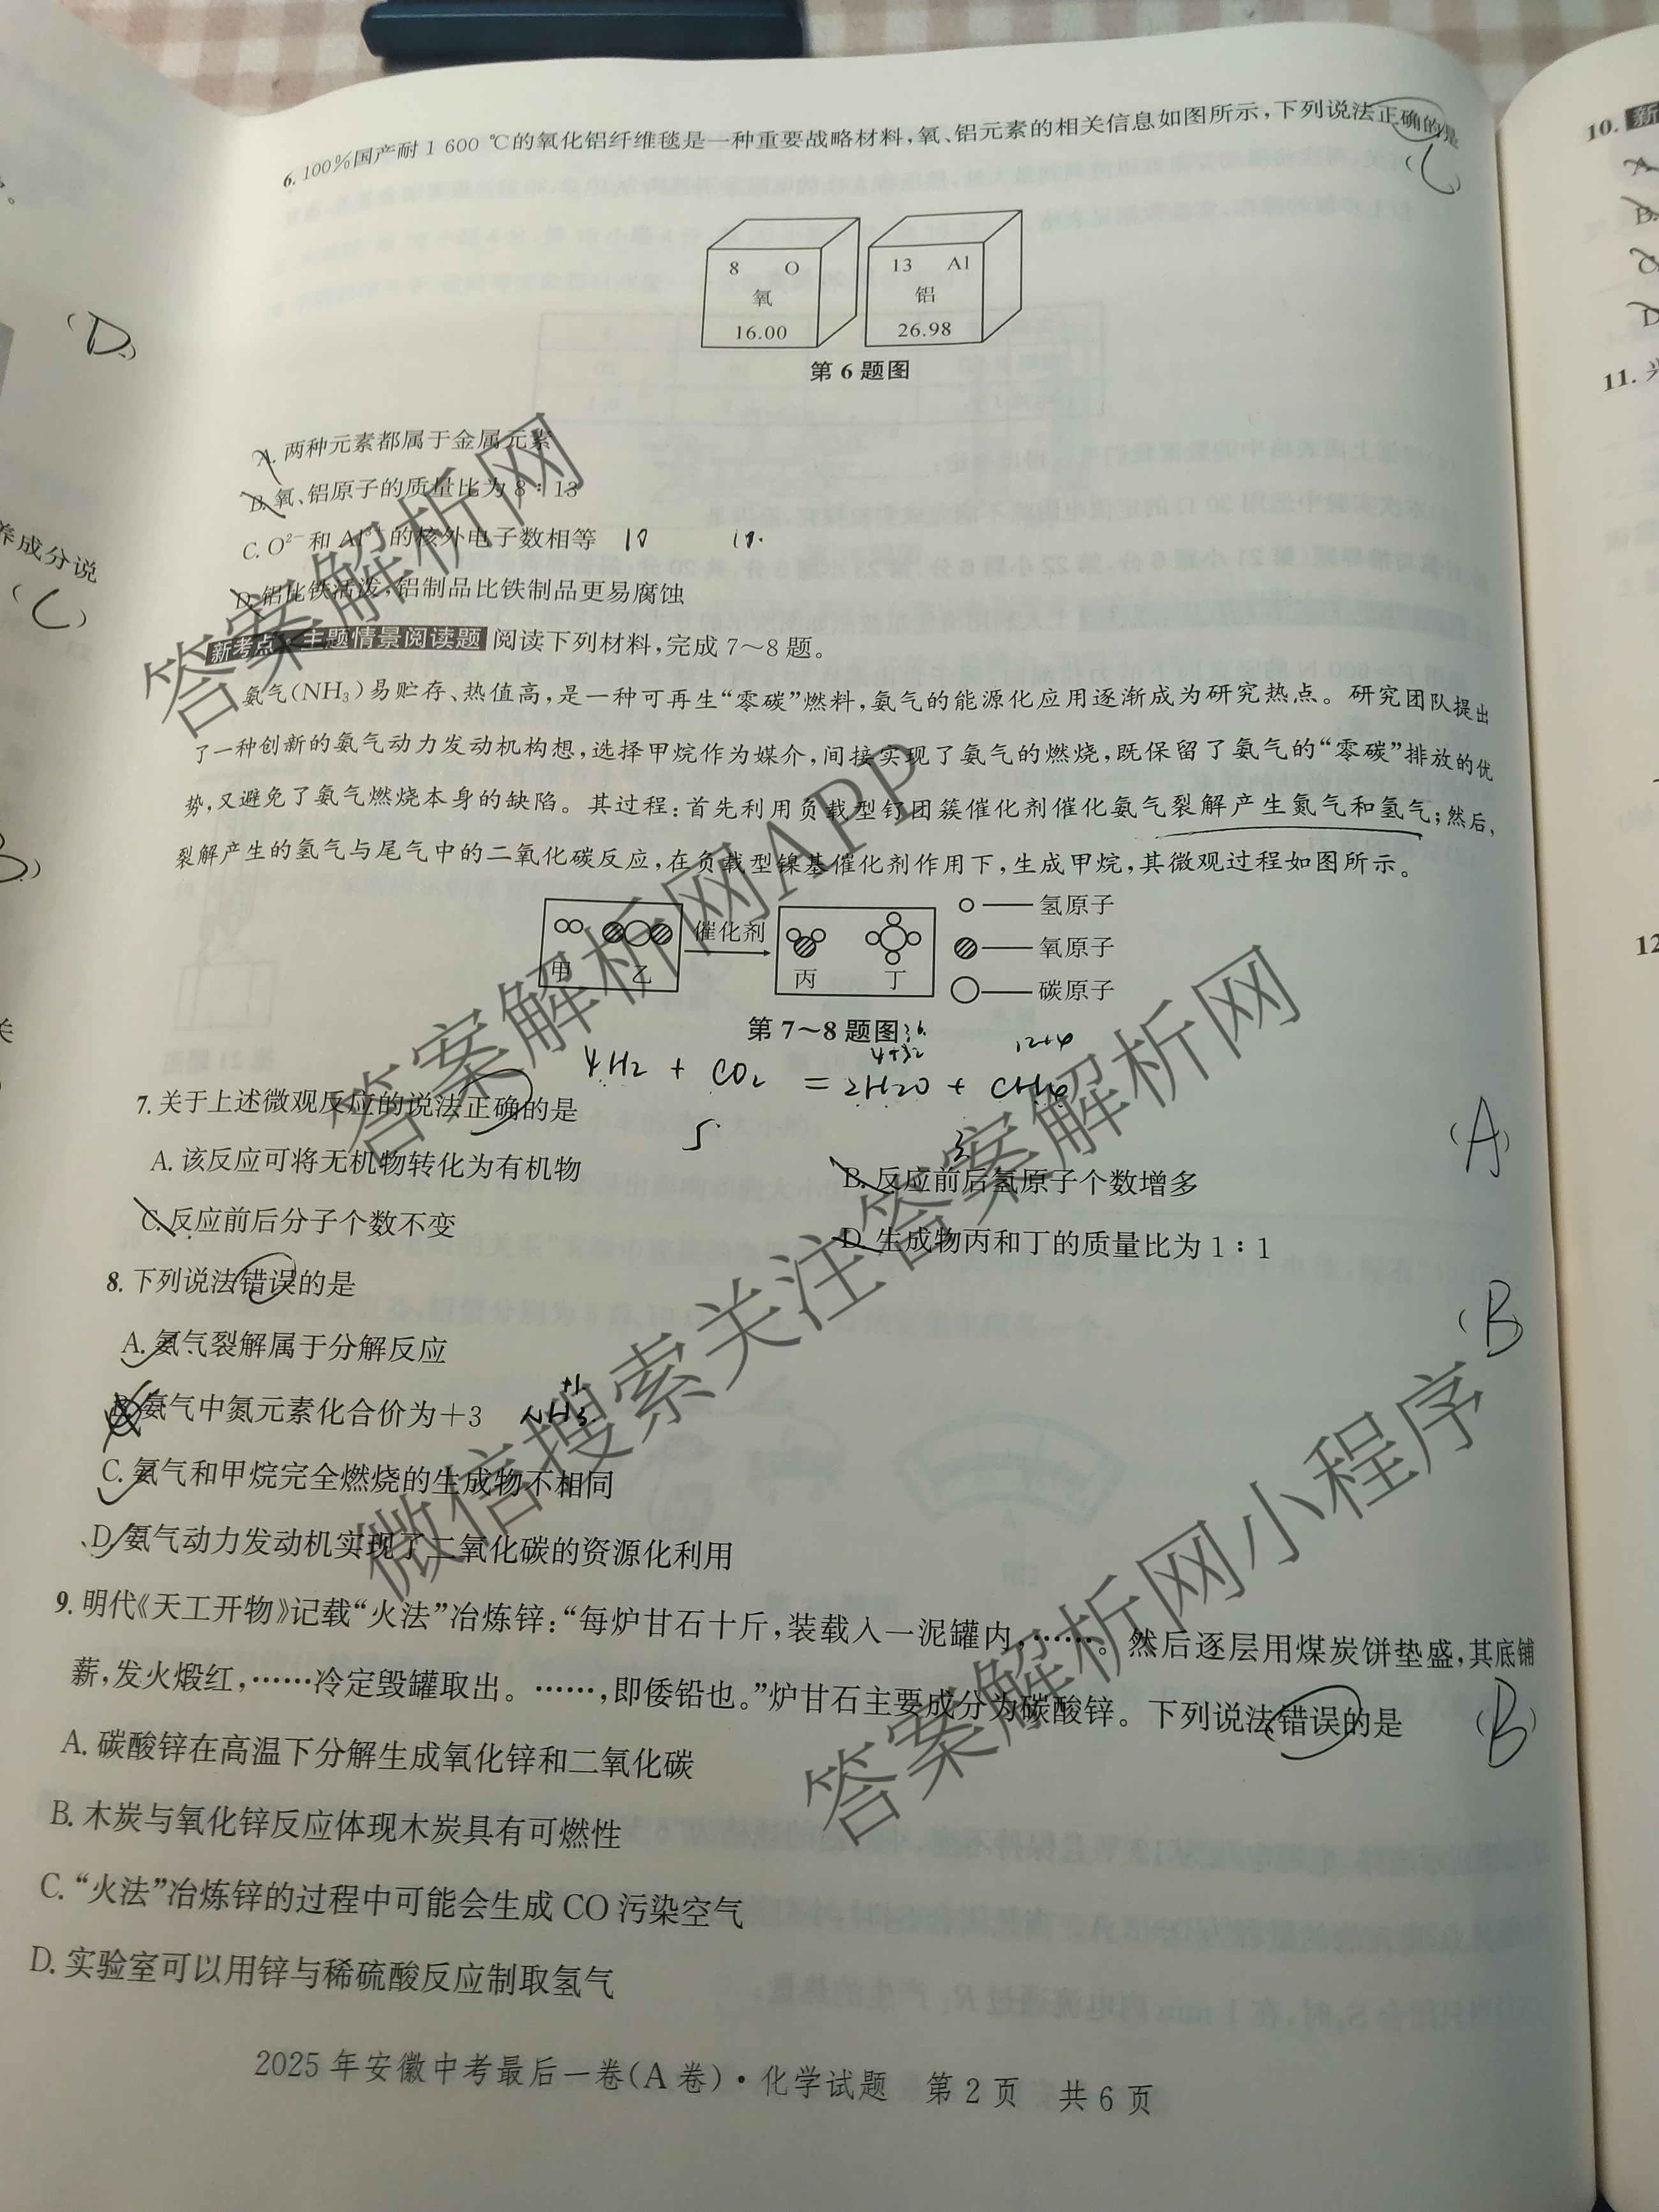 6. 100%国产耐 1 600 ℃的氧化铝纤维毯是一种重要战略材料,氧、铝元素的相关信息如图所示,下列说法正确的是
(C)
8 O
氧
16.00
13 Al
铝
26.98
第 6 题图
(D)
A. 两种元素都属于金属元素
B. 氧、铝原子的质量比为 8∶13
C. O²⁻和 Al³⁺的核外电子数相等 10 10
D. 铝比铁活泼,铝制品比铁制品更易腐蚀
养成分说
(C)
新考点·主题情景阅读题 阅读下列材料,完成 7～8 题。
氨气(NH₃)易贮存、热值高,是一种可再生“零碳”燃料,氨气的能源化应用逐渐成为研究热点。研究团队提出
了一种创新的氨气动力发动机构想,选择甲烷作为媒介,间接实现了氨气的燃烧,既保留了氨气的“零碳”排放的优
势,又避免了氨气燃烧本身的缺陷。其过程:首先利用负载型钌团簇催化剂催化氨气裂解产生氮气和氢气;然后,
裂解产生的氢气与尾气中的二氧化碳反应,在负载型镍基催化剂作用下,生成甲烷,其微观过程如图所示。
甲 乙
催化剂
丙 丁
氢原子
氧原子
碳原子
第 7～8 题图
36
4+32 12+4
4H2 + CO2 = 2H2O + CH4
5 3
7. 关于上述微观反应的说法正确的是
(A)
A. 该反应可将无机物转化为有机物
B. 反应前后氢原子个数增多
C. 反应前后分子个数不变
D. 生成物丙和丁的质量比为 1∶1
8. 下列说法错误的是
(B)
A. 氨气裂解属于分解反应
B. 氨气中氮元素化合价为+3 +1 NH3
C. 氨气和甲烷完全燃烧的生成物不相同
D. 氨气动力发动机实现了二氧化碳的资源化利用
9. 明代《天工开物》记载“火法”冶炼锌:“每炉甘石十斤,装载入一泥罐内,……。然后逐层用煤炭饼垫盛,其底铺
薪,发火煅红,……冷定毁罐取出。……,即倭铅也。”炉甘石主要成分为碳酸锌。下列说法错误的是
(B)
A. 碳酸锌在高温下分解生成氧化锌和二氧化碳
B. 木炭与氧化锌反应体现木炭具有可燃性
C. “火法”冶炼锌的过程中可能会生成 CO 污染空气
D. 实验室可以用锌与稀硫酸反应制取氢气
2025 年安徽中考最后一卷(A 卷)·化学试题 第 2 页 共 6 页
10. 新
A
B.
C
D
11.
12
答案解析网
答案解析网APP
微信搜索关注答案解析网
答案解析网小程序